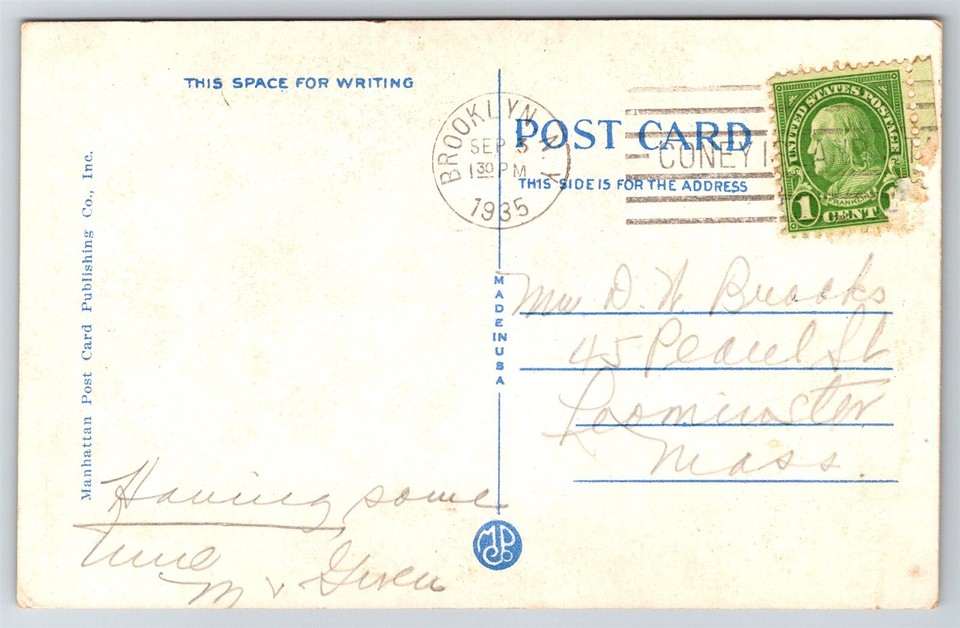 THIS SPACE FOR WRITING
Manhattan Post Card Publishing Co., Inc.
Having some
time
M & Gwen
MADE IN USA
MPC
BROOKLYN N.Y.
SEP 3
1 30 PM
1935
POST CARD
CONEY I
THIS SIDE IS FOR THE ADDRESS
UNITED STATES POSTAGE
FRANKLIN
1 CENT
Mrs D. N Brooks
45 Pearl St
Leominster
Mass.